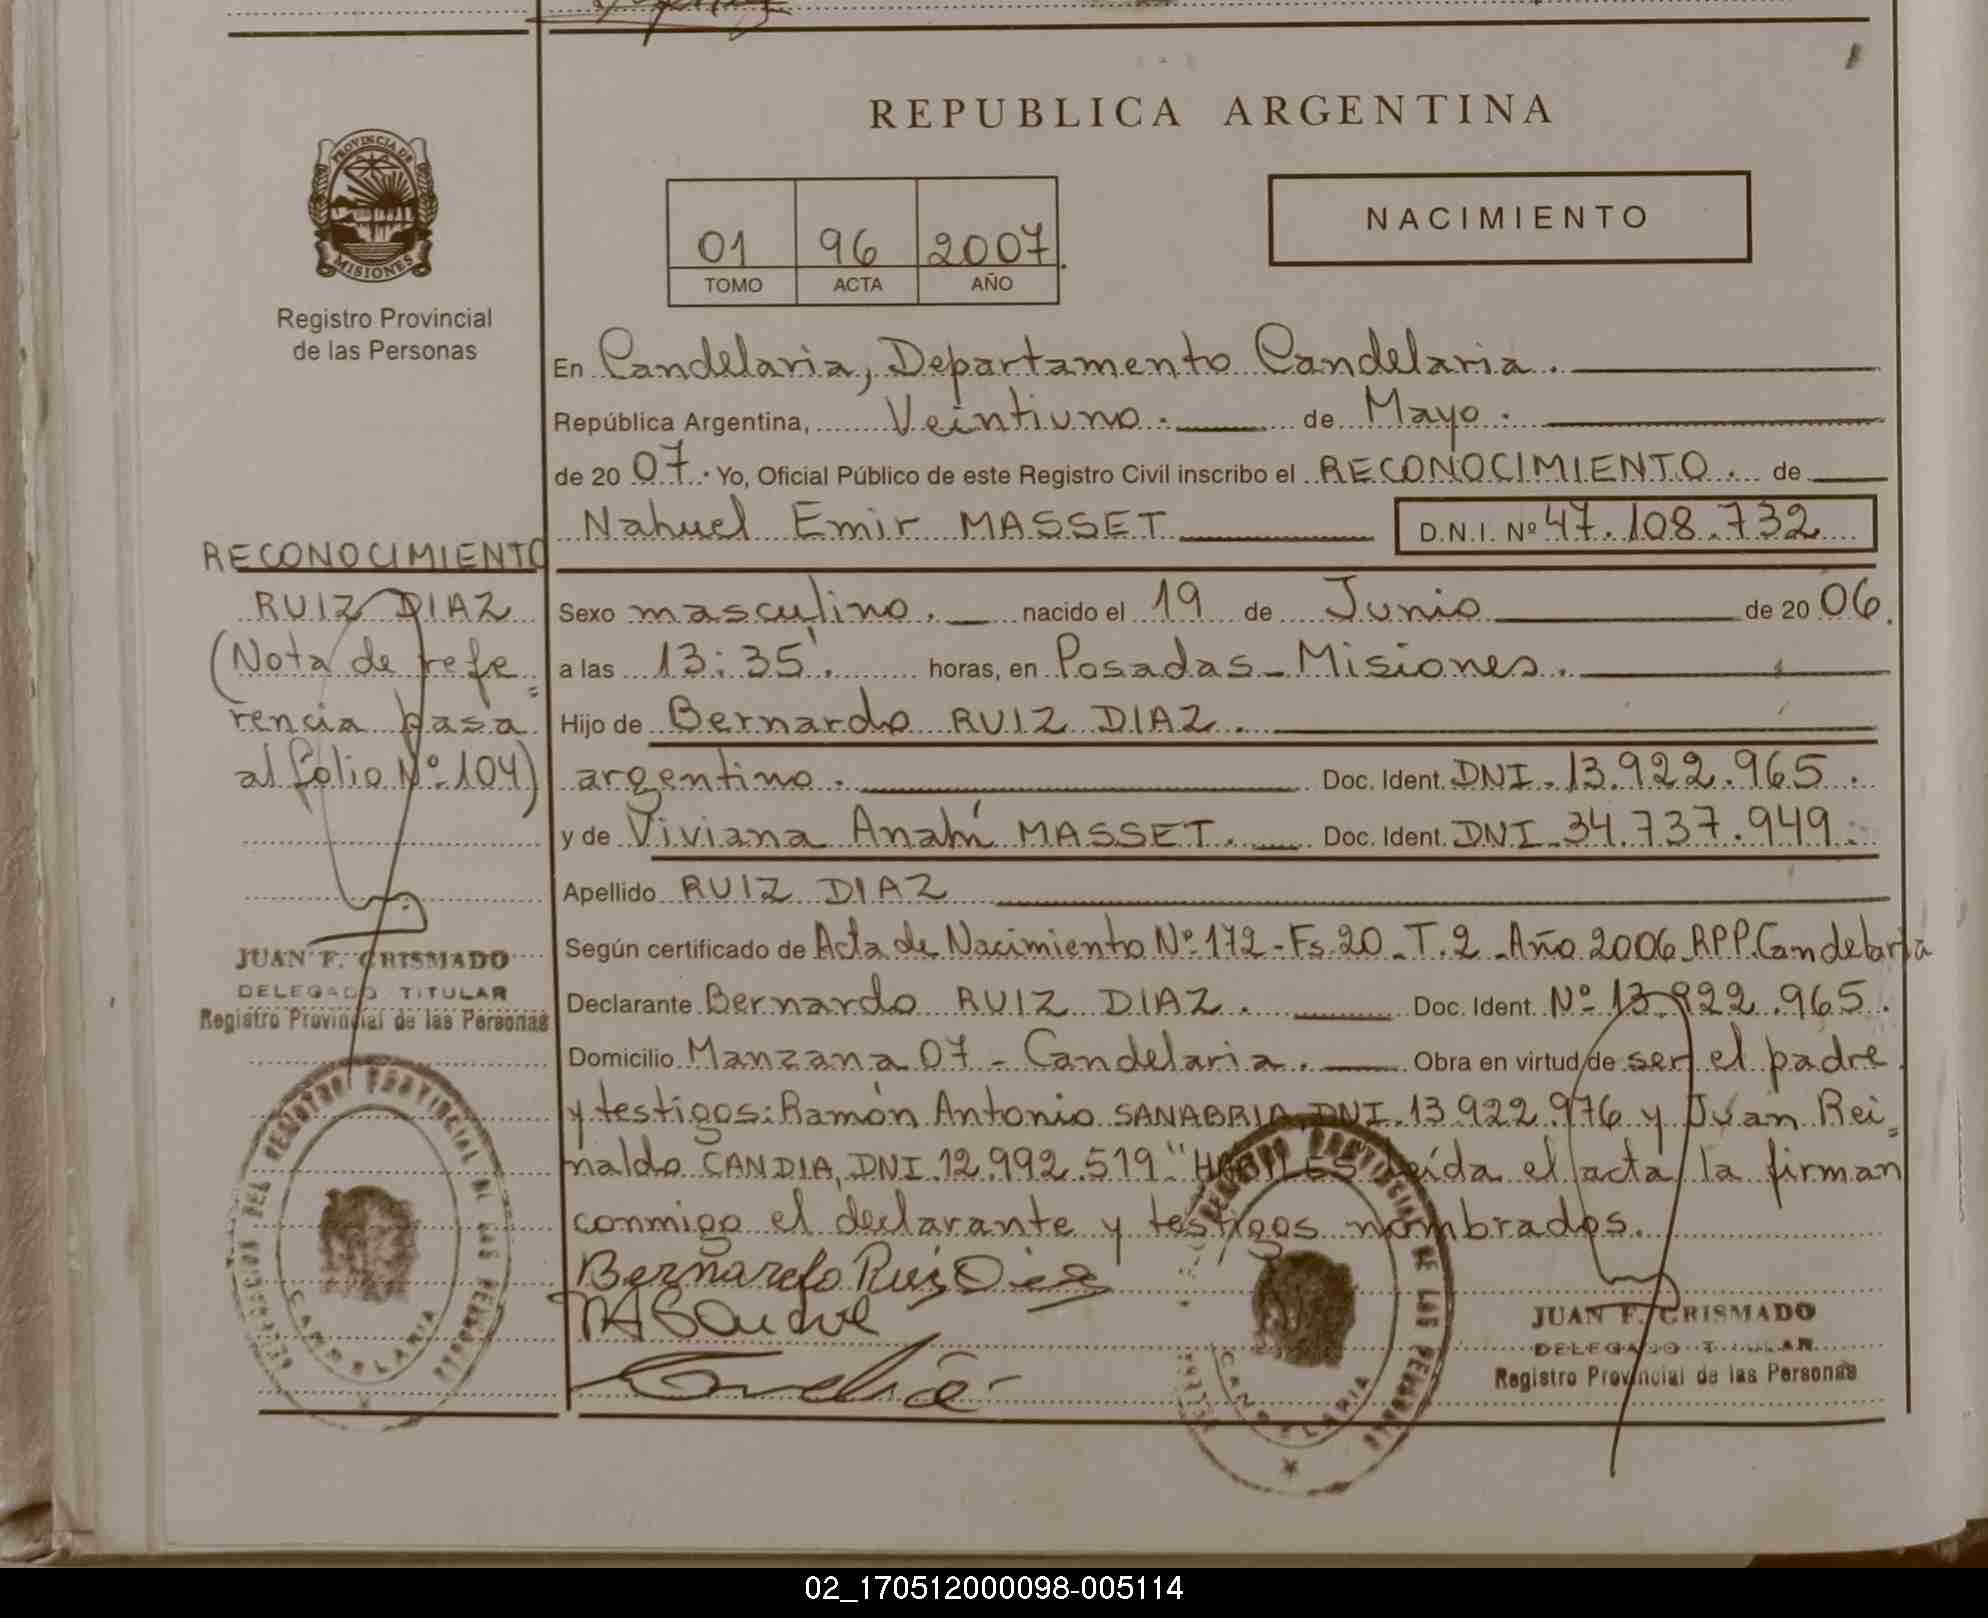 REPUBLICA ARGENTINA
PROVINCIA DE
MISIONES
Registro Provincial
de las Personas
01 96 2007
TOMO ACTA AÑO
NACIMIENTO
En Candelaria, Departamento Candelaria.
República Argentina, Veintiuno. de Mayo.
de 20 07. Yo, Oficial Público de este Registro Civil inscribo el RECONOCIMIENTO. de
Nahuel Emir MASSET D.N.I. Nº 47.108.732
RECONOCIMIENTO
RUIZ DIAZ
(Nota de refe=
rencia pasa
al folio Nº 104)
JUAN F. CRISMADO
DELEGADO TITULAR
Registro Provincial de las Personas
Sexo masculino. nacido el 19 de Junio de 20 06.
a las 13:35'. horas, en Posadas - Misiones.
Hijo de Bernardo RUIZ DIAZ.
argentino. Doc. Ident. DNI. 13.922.965.
y de Viviana Anahí MASSET. Doc. Ident. DNI. 34.737.949.
Apellido RUIZ DIAZ
Según certificado de Acta de Nacimiento Nº 172 - Fs. 20 - T. 2 - Año 2006 RPP. Candelaria
Declarante Bernardo RUIZ DIAZ. Doc. Ident. Nº 13.922.965.
Domicilio Manzana 07 - Candelaria. Obra en virtud de ser el padre
y testigos: Ramón Antonio SANABRIA, DNI. 13.922.976 y Juan Rei=
naldo CANDIA, DNI. 12.992.519. "HABILES" leída el acta la firman
conmigo el declarante y testigos nombrados.
Bernardo Ruis Dias
JUAN F. CRISMADO
DELEGADO TITULAR
Registro Provincial de las Personas
DELEGACION DEL REGISTRO PROVINCIAL DE LAS PERSONAS
CANDELARIA
REGISTRO PROVINCIAL DE LAS PERSONAS
CANDELARIA
02_170512000098-005114